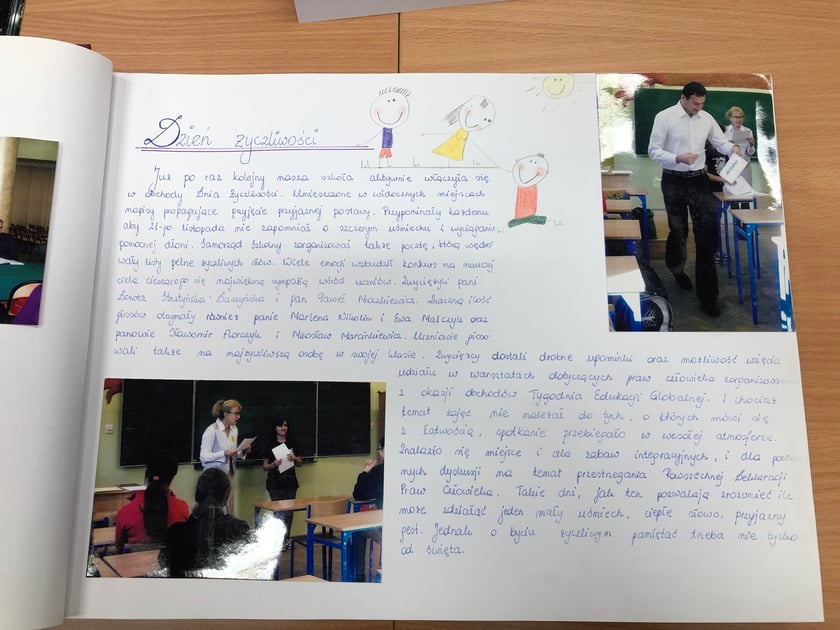 Dzień życzliwości
Już po raz kolejny nasza szkoła aktywnie włączyła się
w obchody Dnia Życzliwości. Umieszczone w widocznych miejscach
napisy propagujące przyjęcie przyjaznej postawy. Przypominały każdemu
aby 21-go listopada nie zapomniał o szczerym uśmiechu i wyciągnię
pomocnej dłoni. Samorząd Szkolny zorganizował także pocztę, którą wędro
wały listy pełne życzliwych słów. Wiele emocji wzbudził konkurs na nauczy
ciela cieszącego się największą sympatią wśród uczniów. Zwyciężyli pani
Dorota i pan Paweł Maszkiewicz. Znaczną ilość
głosów otrzymały również panie Marlena Nikolin i Ewa Malczyk oraz
panowie Sławomir Florczyk i Mirosław Marcinkiewicz. Uczniowie głoso
wali także na najżyczliwszą osobę w swojej klasie. Zwycięzcy dostali drobne upominki oraz możliwość wzięcia
udziału w warsztatach dotyczących praw człowieka zorganizowanych
z okazji obchodów Tygodnia Edukacji Globalnej. I chociaż
temat zajęć nie należał do tych, o których mówi się
z łatwością, spotkanie przebiegało w wesołej atmosferze.
Znalazło się miejsce i dla zabaw integracyjnych, i dla poważ
nych dyskusji na temat przestrzegania Powszechnej Deklaracji
Praw Człowieka. Takie dni, jak ten pozwalają zrozumieć ile
może zdziałać jeden mały uśmiech, ciepłe słowo, przyjazny
gest. Jednak o byciu życzliwym pamiętać trzeba nie tylko
od święta.